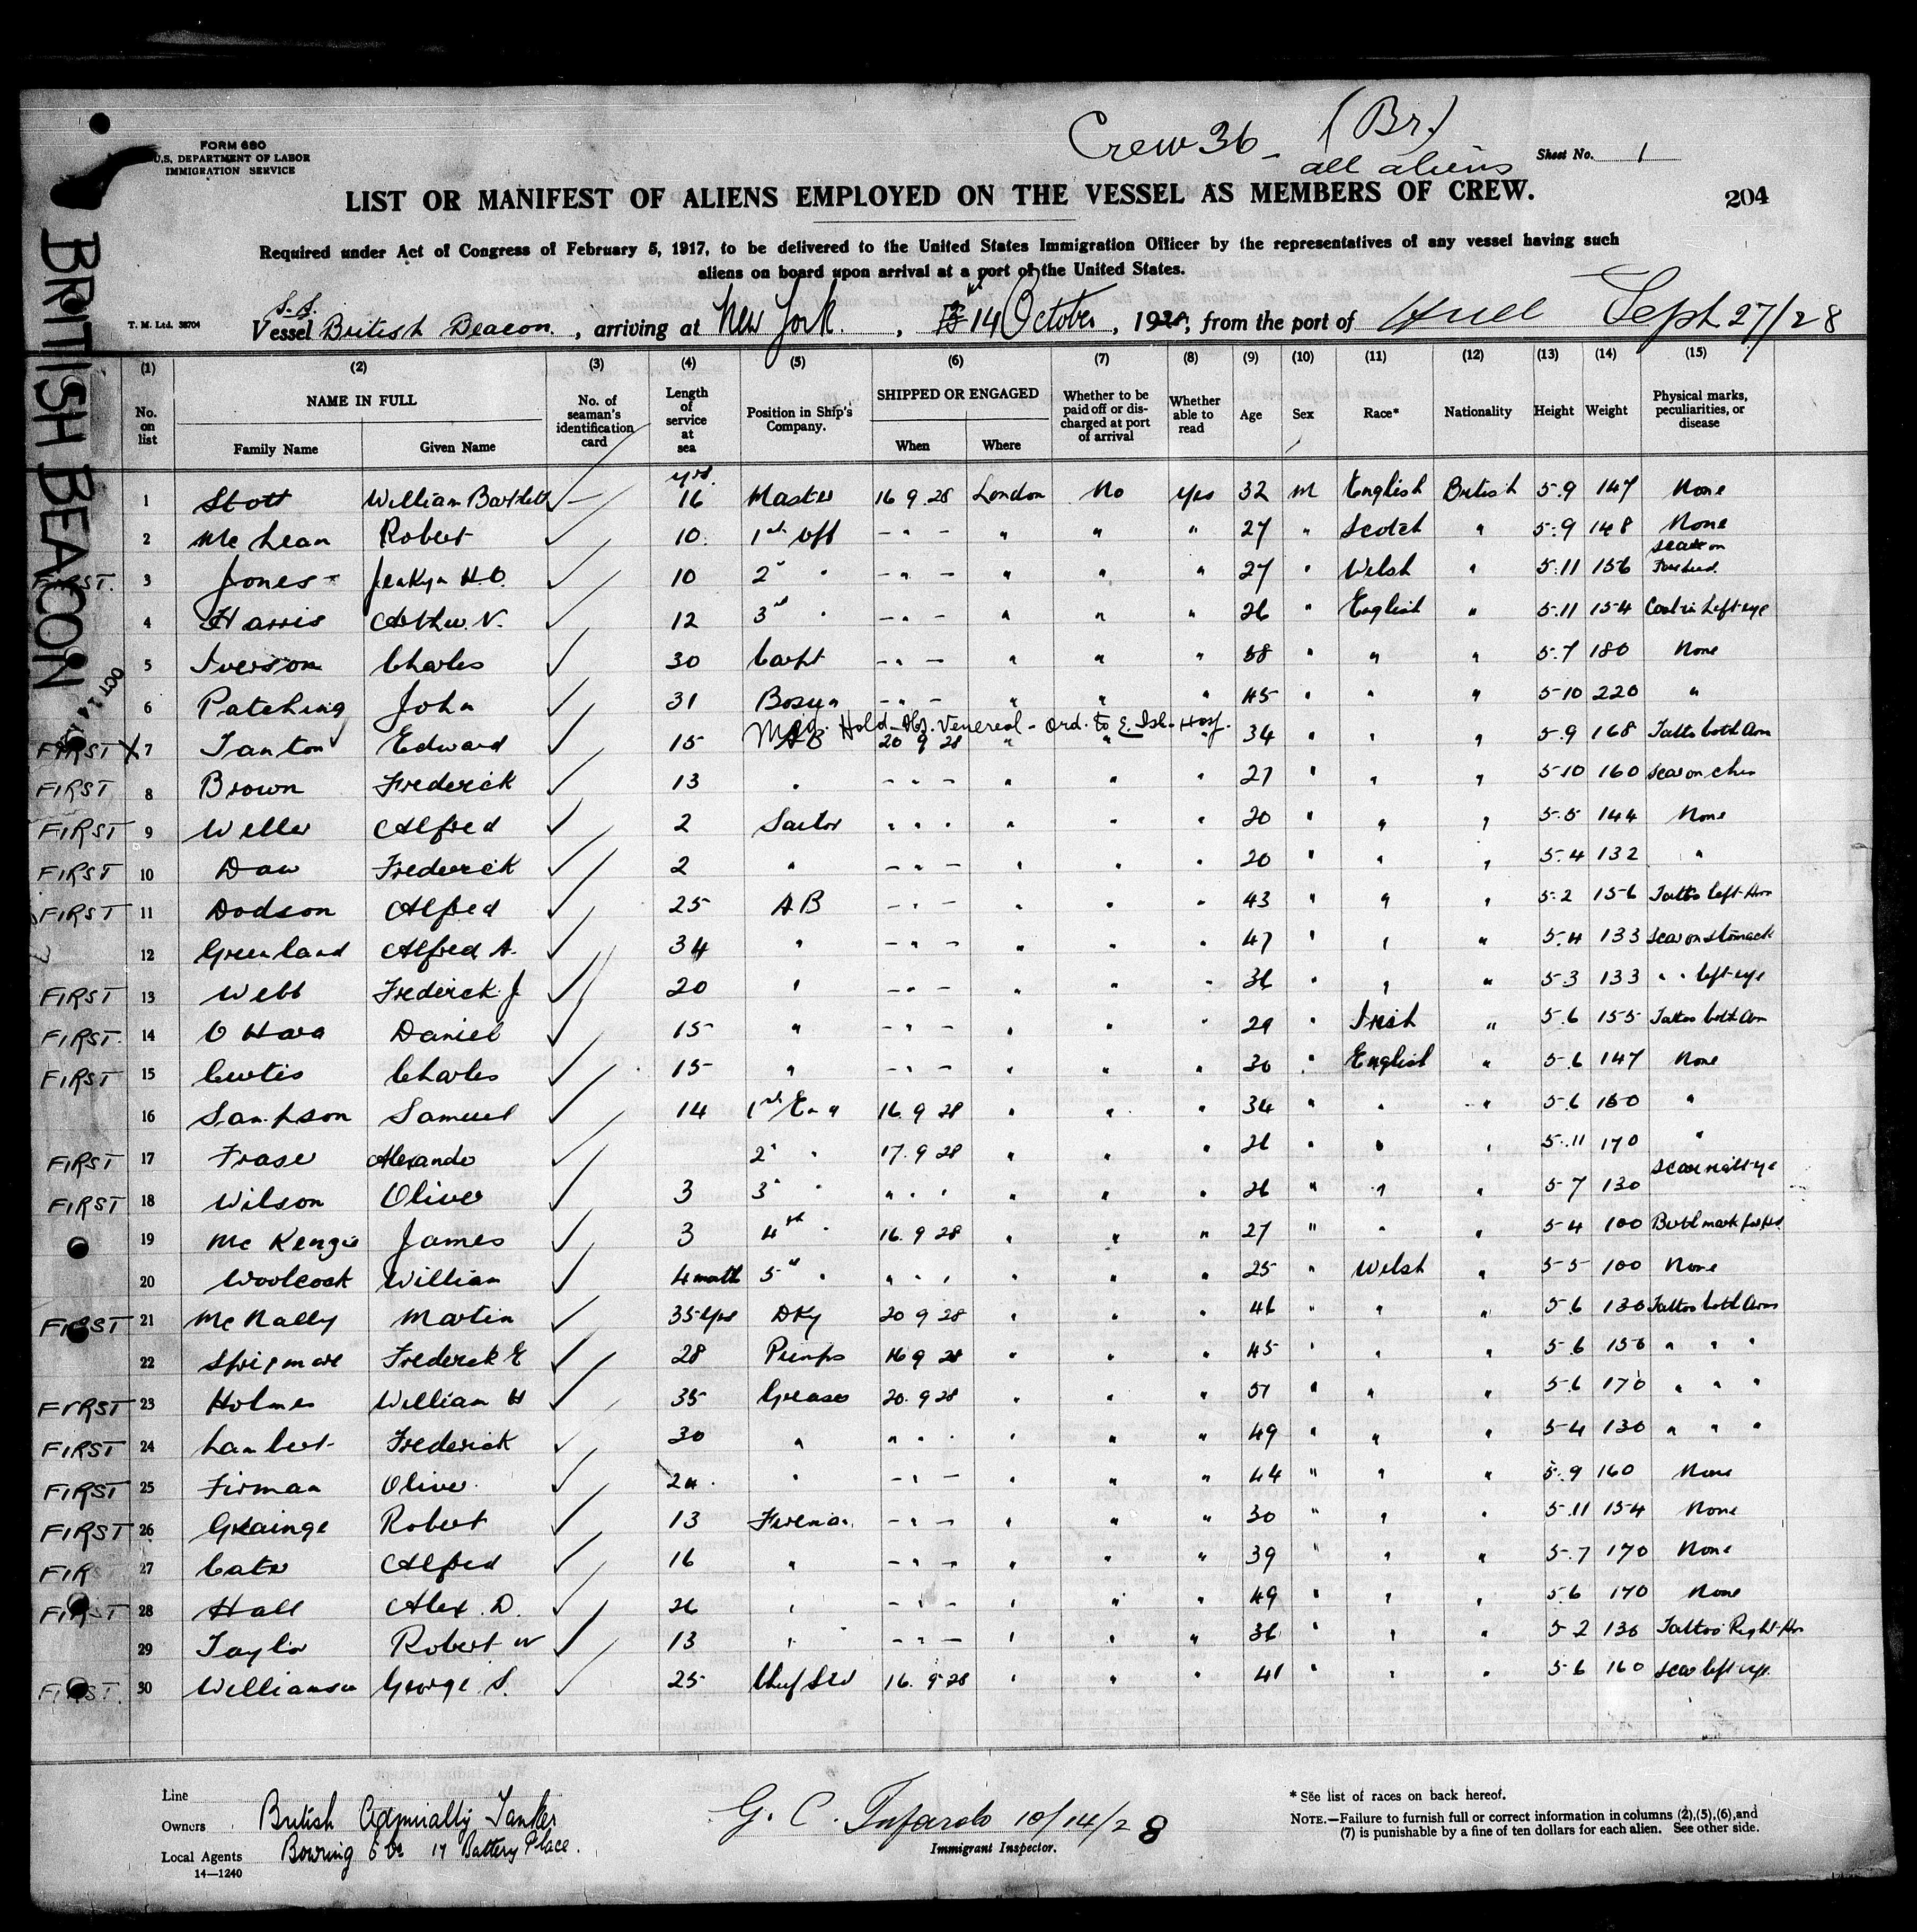 Crew 36 - (Br.)
all aliens
FORM 680
U.S. DEPARTMENT OF LABOR
IMMIGRATION SERVICE
Sheet No. 1
LIST OR MANIFEST OF ALIENS EMPLOYED ON THE VESSEL AS MEMBERS OF CREW.
204
Required under Act of Congress of February 5, 1917, to be delivered to the United States Immigration Officer by the representatives of any vessel having such
aliens on board upon arrival at a port of the United States.
T. M. Ltd. 38704
S.S.
Vessel British Beacon, arriving at New York, 14 October, 1928, from the port of Hull Sept 27/28
BRITISH BEACON
OCT 14
(1) (2) (3) (4) (5) (6) (7) (8) (9) (10) (11) (12) (13) (14) (15)
No. on list NAME IN FULL Family Name Given Name No. of seaman's identification card Length of service at sea Position in Ship's Company. SHIPPED OR ENGAGED When Where Whether to be paid off or discharged at port of arrival Whether able to read Age Sex Race* Nationality Height Weight Physical marks, peculiarities, or disease
yrs.
1 Stott William Bartlett - 16 Master 16 9 28 London No Yes 32 M English British 5.9 147 None
2 McLean Robert 10 1st Off - " - " " " 27 " Scotch " 5.9 148 None
FIRST. 3 Jones Jenkyn H.O. 10 2" " - " - " " " 27 " Welsh " 5.11 156 Scar on Forehead
4 Harris Arthur V. 12 3rd " - " - " " " 26 " English " 5.11 154 Cast in Left eye
5 Iverson Charles 30 Carpt - " - " " " 58 " " " 5.7 180 None
6 Patching John 31 Bosun - " - " " " 45 " " " 5-10 220 "
Med. Hold Obs. Venereal - Ord. to E. Isl. Hosp.
FIRST X 7 Tanton Edward 15 AB 20 9 28 " " " 34 " " " 5.9 168 Tatto both Arm
FIRST 8 Brown Frederick 13 " - " - " " " 27 " " " 5-10 160 Scar on
FIRST 9 Weller Alfred 2 Sailor " " " " " " 20 " " " 5.5 144 None
FIRST 10 Daw Frederick 2 " - " - " " " 20 " " " 5.4 132 "
FIRST 11 Dodson Alfred 25 AB - " - " " " 43 " " " 5.2 156 Tatto left Arm
12 Greenland Alfred A. 34 " - " - " " " 47 " " " 5.4 133 Scar on Stomach
FIRST 13 Webb Frederick J 20 " - " - " " " 36 " " " 5.3 133 " " left eye
FIRST. 14 O Hara Daniel 15 " - " - " " " 29 " Irish " 5.6 155 Tattoo both Arm
FIRST 15 Curtis Charles 15 " - " - " " " 30 " English " 5.6 147 None
16 Sampson Samuel 14 1st Eng 16. 9 28 " " " 34 " " " 5.6 "
FIRST 17 Fraser Alexander 2" " 17. 9 28 " " " 26 " " " 5.11 170 "
FIRST 18 Wilson Oliver 3 3" " " " " " " " 26 " " " 5-7 130 Scar right eye
19 McKenzie James 3 4th " 16. 9 28 " " " 27 " " " 5-4 100 Birth mark
20 Woolcock William 4 month 5th " " " " " " " 25 " Welsh " 5-5 100 None
FIRST 21 McNally Martin 35 yrs Dky 20 9 28 " " " 46 " " " 5.6 130 Tattoo both Arms
22 Frederick E 28 Pumps 16 9 28 " " " 45 " " " 5.6 150 " " "
FIRST 23 Holmes William H 35 Greaser 20. 9 28 " " " 51 " " " 5.6 170 " " "
FIRST 24 Lambert Frederick 30 " " " " " " " 49 " " " 5-4 130 " " "
FIRST 25 Firman Oliver " - " - " " " 44 " " " 5.9 160 None
FIRST 26 Grainge Robert 13 Fireman - " - " " " 30 " " " 5.11 154 None
FIR 27 Cater Alfred 16 " - " - " " " 39 " " " 5.7 170 None
FIRST 28 Hall Alex. D. 26 " - " - " " " 49 " " " 5.6 170 None
29 Taylor Robert W 13 " - " - " " " 36 " " " 5-2 130 Tattoo Right Arm
FIRST. 30 Williamson George S. 25 Chief Std 16. 9 28 " " " 41 " " " 5.6 160 Scar left eye
Line
Owners British Admiralty Tanker
Local Agents Bowring & Co 17 Battery Place.
14—1240
G. C. 10/14/28
Immigrant Inspector.
* See list of races on back hereof.
NOTE.—Failure to furnish full or correct information in columns (2), (5), (6), and
(7) is punishable by a fine of ten dollars for each alien. See other side.